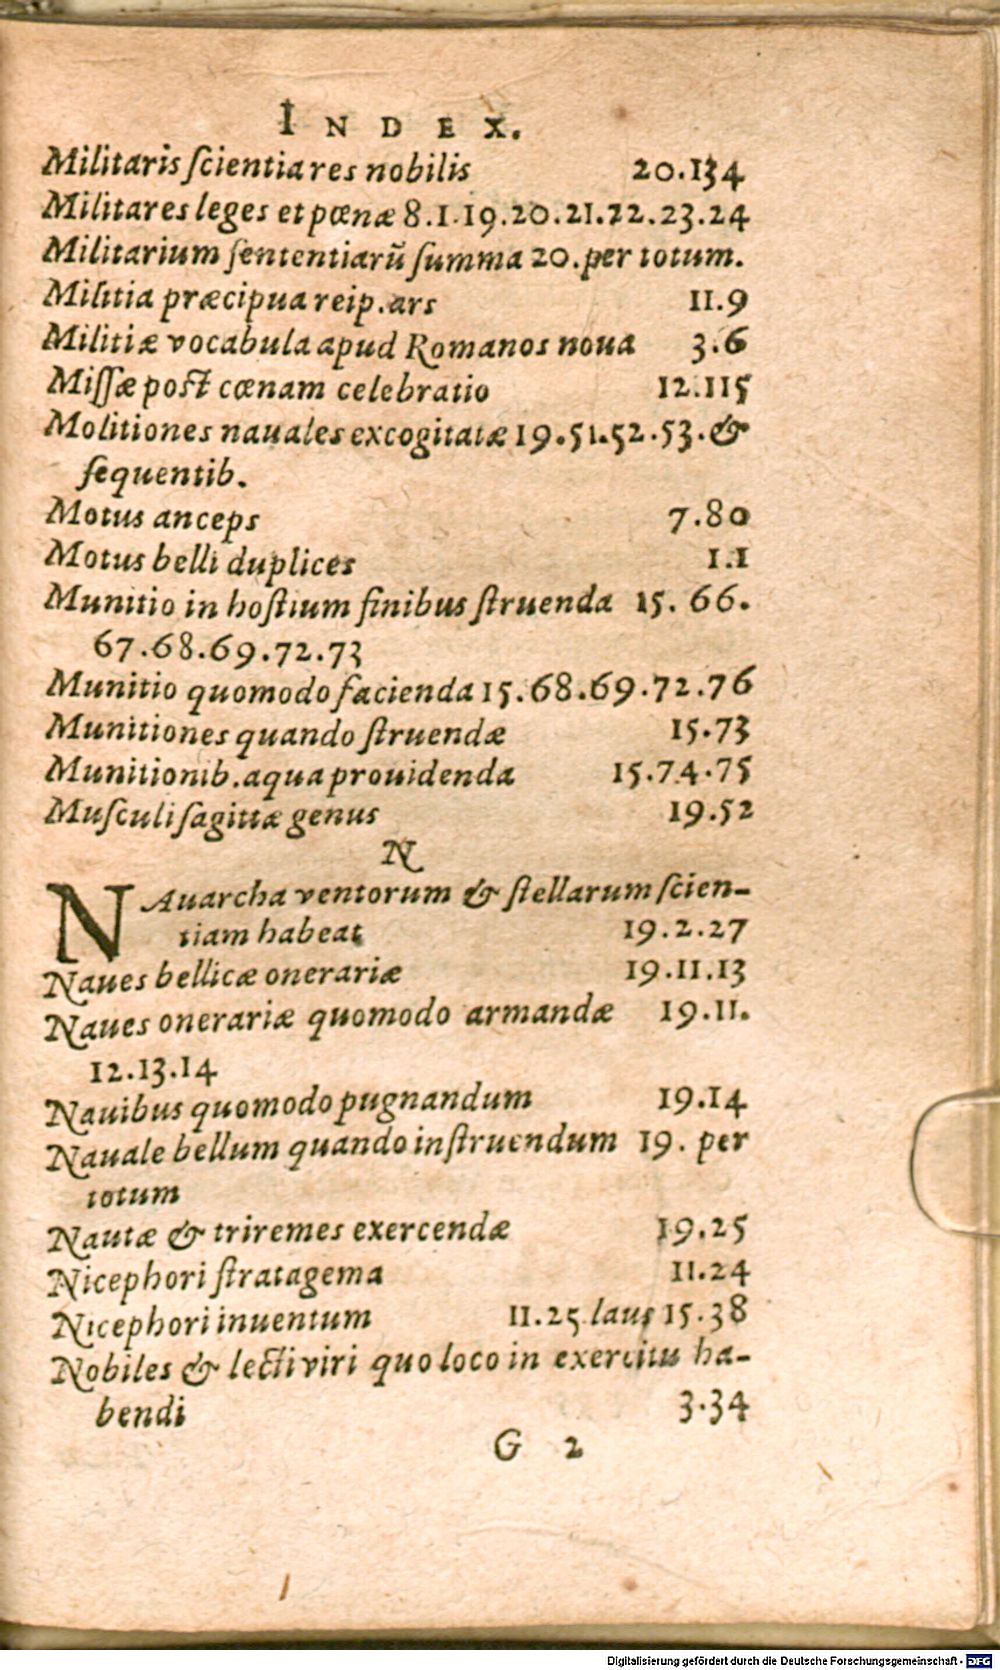 INDEX.
Militaris ſcientia res nobilis 20.134
Militares leges et pœnæ 8.1.19.20.21.22.23.24
Militarium ſententiarũ ſumma 20.per totum.
Militia præcipua reip.ars 11.9
Militiæ vocabula apud Romanos noua 3.6
Miſſæ poſt cœnam celebratio 12.115
Molitiones nauales excogitatæ 19.51.52.53.&
ſequentib.
Motus anceps 7.80
Motus belli duplices 1.1
Munitio in hoſtium finibus ſtruenda 15. 66.
67.68.69.72.73
Munitio quomodo facienda 15.68.69.72.76
Munitiones quando ſtruendæ 15.73
Munitionib.aqua prouidenda 15.74.75
Muſculi ſagittæ genus 19.52
N
NAuarcha ventorum & ſtellarum ſcien-
tiam habeat 19.2.27
Naues bellicæ onerariæ 19.11.13
Naues onerariæ quomodo armandæ 19.11.
12.13.14
Nauibus quomodo pugnandum 19.14
Nauale bellum quando inſtruendum 19. per
totum
Nautæ & triremes exercendæ 19.25
Nicephori ſtratagema 11.24
Nicephori inuentum 11.25 laus 15.38
Nobiles & lecti viri quo loco in exercitu ha-
bendi 3.34
G 2
Digitalisierung gefördert durch die Deutsche Forschungsgemeinschaft - DFG